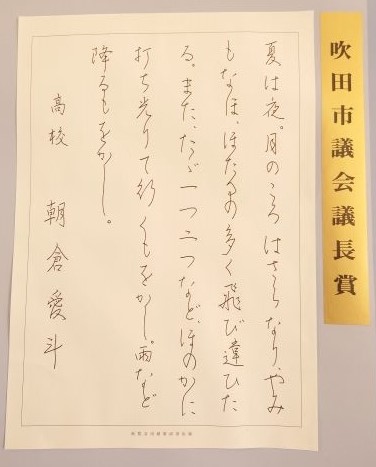 吹田市議会議長賞
夏は夜。月のころはさらなり、やみ
もなほ、ほたるの多く飛び違ひた
る。また、たゞ一つ二つなど、ほのかに
打ち光りて行くもをかし。雨など
降るもをかし。
高校 朝倉愛斗